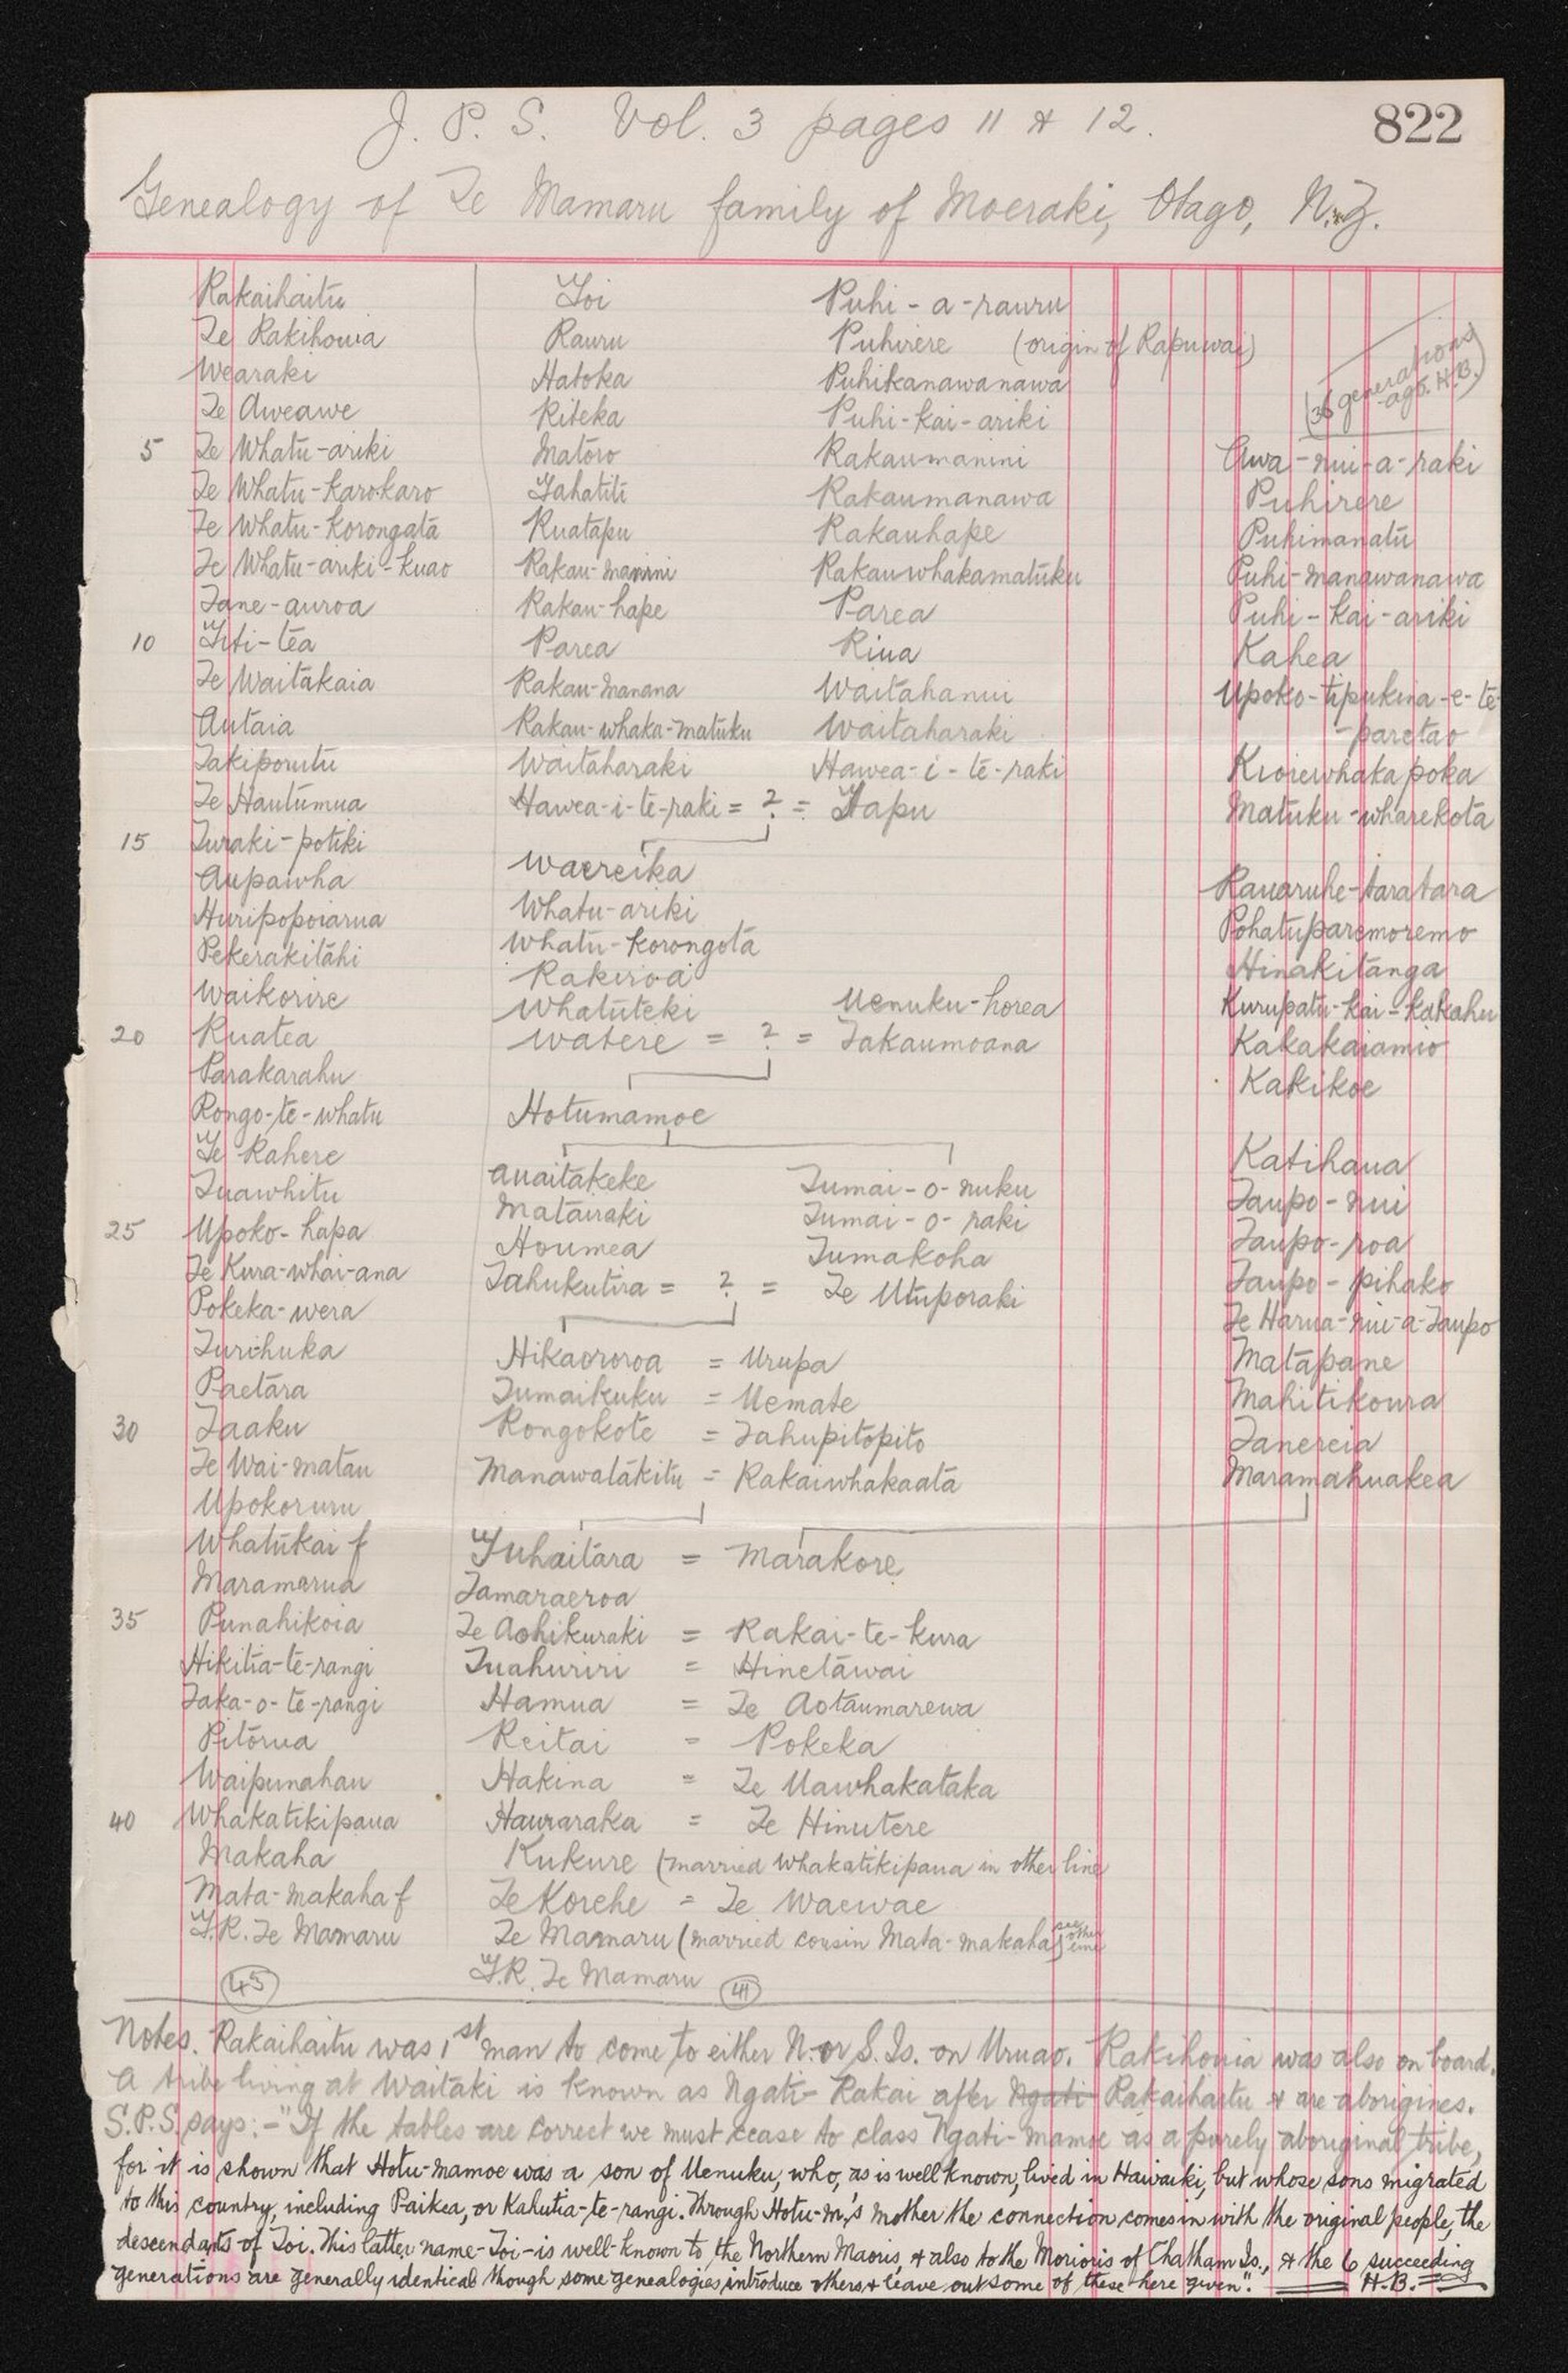 J. P. S. Vol. 3 pages 11 & 12.
822
Genealogy of Te Mamaru family of Moeraki, Otago, N.Z.
Rakaihaitu
Te Rakihouia
Wearaki
Te Aweawe
5 Te Whatu-ariki
Te Whatu-karokaro
Te Whatu-korongata
Te Whatu-ariki-kuao
Tane-auroa
10 Titi-tea
Te Waitakaia
Autaia
Takiporutu
Te Hautumua
15 Turaki-potiki
Aupawha
Huripopoiarua
Pekerakitahi
Waikorire
20 Ruatea
Parakarahu
Rongo-te-whatu
Te Rahere
Tuawhitu
25 Upoko-hapa
Te Kura-whai-ana
Pokeka-wera
Turihuka
Paetara
30 Taaku
Te Wai-matau
Upokoruru
Whatukai f
Maramarua
35 Punahikoia
Hikitia-te-rangi
Taka-o-te-rangi
Pitorua
Waipunahau
40 Whakatikipaua
Makaha
Mata-makaha f
T.R. Te Mamaru
45
Toi
Rauru
Hatoka
Riteka
Matoro
Tahatiti
Ruatapu
Rakau-manini
Rakau-hape
Parea
Rakau-manana
Rakau-whaka-matuku
Waitaharaki
Hawea-i-te-raki = ? = Tapu
Waereika
Whatu-ariki
Whatu-korongota
Rakiroa
Whatuteki
Watere = ? = Takaumoana
Hotumamoe
Auaitakeke
Mataraki
Houmea
Tahukutira = ? = Te Utuporaki
Hikaororoa = Urupa
Tumaikuku = Uemate
Rongokote = Tahupitopito
Manawatakitu = Rakaiwhakaata
Tuhaitara = Marakore
Tamaraeroa
Te Aohikuraki = Rakai-te-kura
Tuahuriri = Hinetawai
Hamua = Te Aotaumarewa
Reitai = Pokeka
Hakina = Te Uawhakataka
Hauraraka = Te Hinutere
Kukure (married Whakatikipaua in other line
Te Korehe = Te Waewae
Te Mamaru (married cousin Mata-makaha) see other line
T.R. Te Mamaru 41
Puhi-a-rauru
Puhirere (origin of Rapuwai)
Puhikanawanawa
Puhi-kai-ariki
Rakaumanini
Rakaumanawa
Rakauhape
Rakauwhakamatuku
Parea
Riua
Waitahanui
Waitaharaki
Hawea-i-te-raki
Uenuku-horea
Tumai-o-nuku
Tumai-o-raki
Tumakoha
(36 generations
ago. H.B.)
Awa-nui-a-raki
Puhirere
Puhimanatu
Puhi-manawanawa
Puhi-kai-ariki
Kahea
Upoko-tipukina-e-te-
-paretao
Kioiewhakapoka
Matuku-wharekota
Rauaruhe-taratara
Pohatuparemoremo
Hinakitanga
Kurupatu-kai-kakahu
Kakakaiamio
Kakikoe
Katihaua
Taupo-nui
Taupo-roa
Taupo-pihako
Te Harua-nui-a-Taupo
Matapane
Mahitikoura
Tanereia
Maramahuakea
Notes. Rakaihaitu was 1st man to come to either N. or S. Is. on Uruao. Rakihouia was also on board.
A tribe living at Waitaki is known as Ngati-Rakai after Ngati Rakaihaitu & are aborigines.
S.P.S. says:- "If the tables are correct we must cease to class Ngati-mamoe as a purely aboriginal tribe,
for it is shown that Hotu-mamoe was a son of Uenuku, who, as is well known, lived in Hawaiki, but whose sons migrated
to this country, including Paikea, or Kahutia-te-rangi. Through Hotu-m.'s mother the connection comes in with the original people, the
descendants of Toi. This latter name-Toi-is well-known to the Northern Maoris, & also to the Morioris of Chatham Is., & the 6 succeeding
generations are generally identical though some genealogies introduce others & leave out some of these here given". H.B.